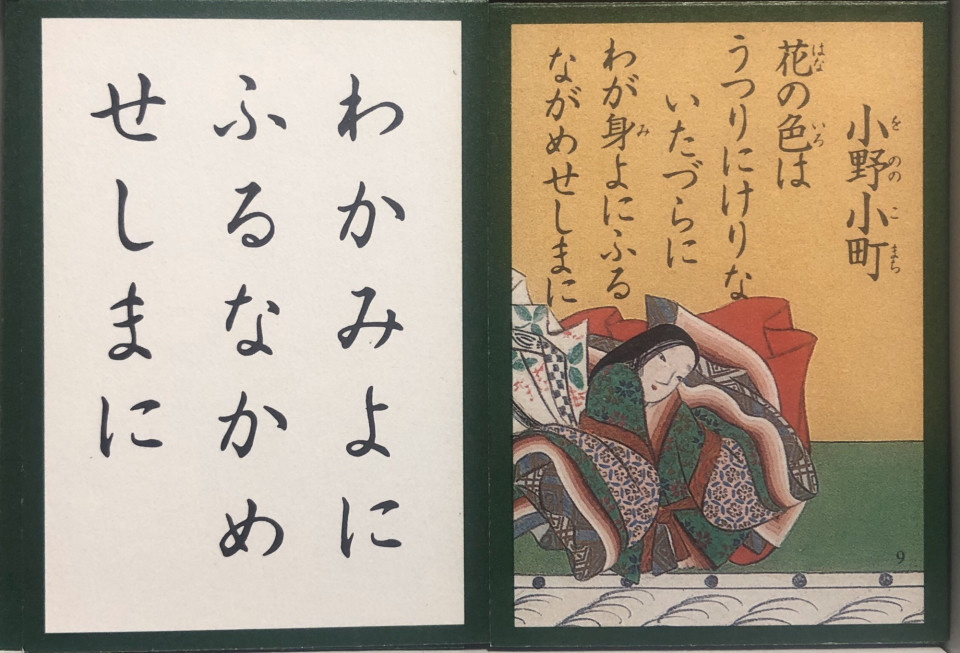 小野小町
をののこまち
花の色は
はないろ
うつりにけりな
いたづらに
わが身よにふる
み
ながめせしまに
9
わかみよに
ふるなかめ
せしまに